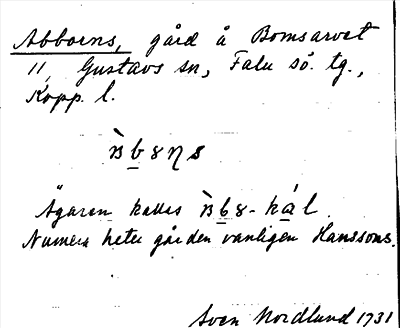 Abboens, gård å Bomsarvet
11, Gustavs sn, Falu sö. tg.,
Kopp. l.
Ägaren kallas
Numera heter gården vanligen Hanssons.
Sven Nordlund 1731